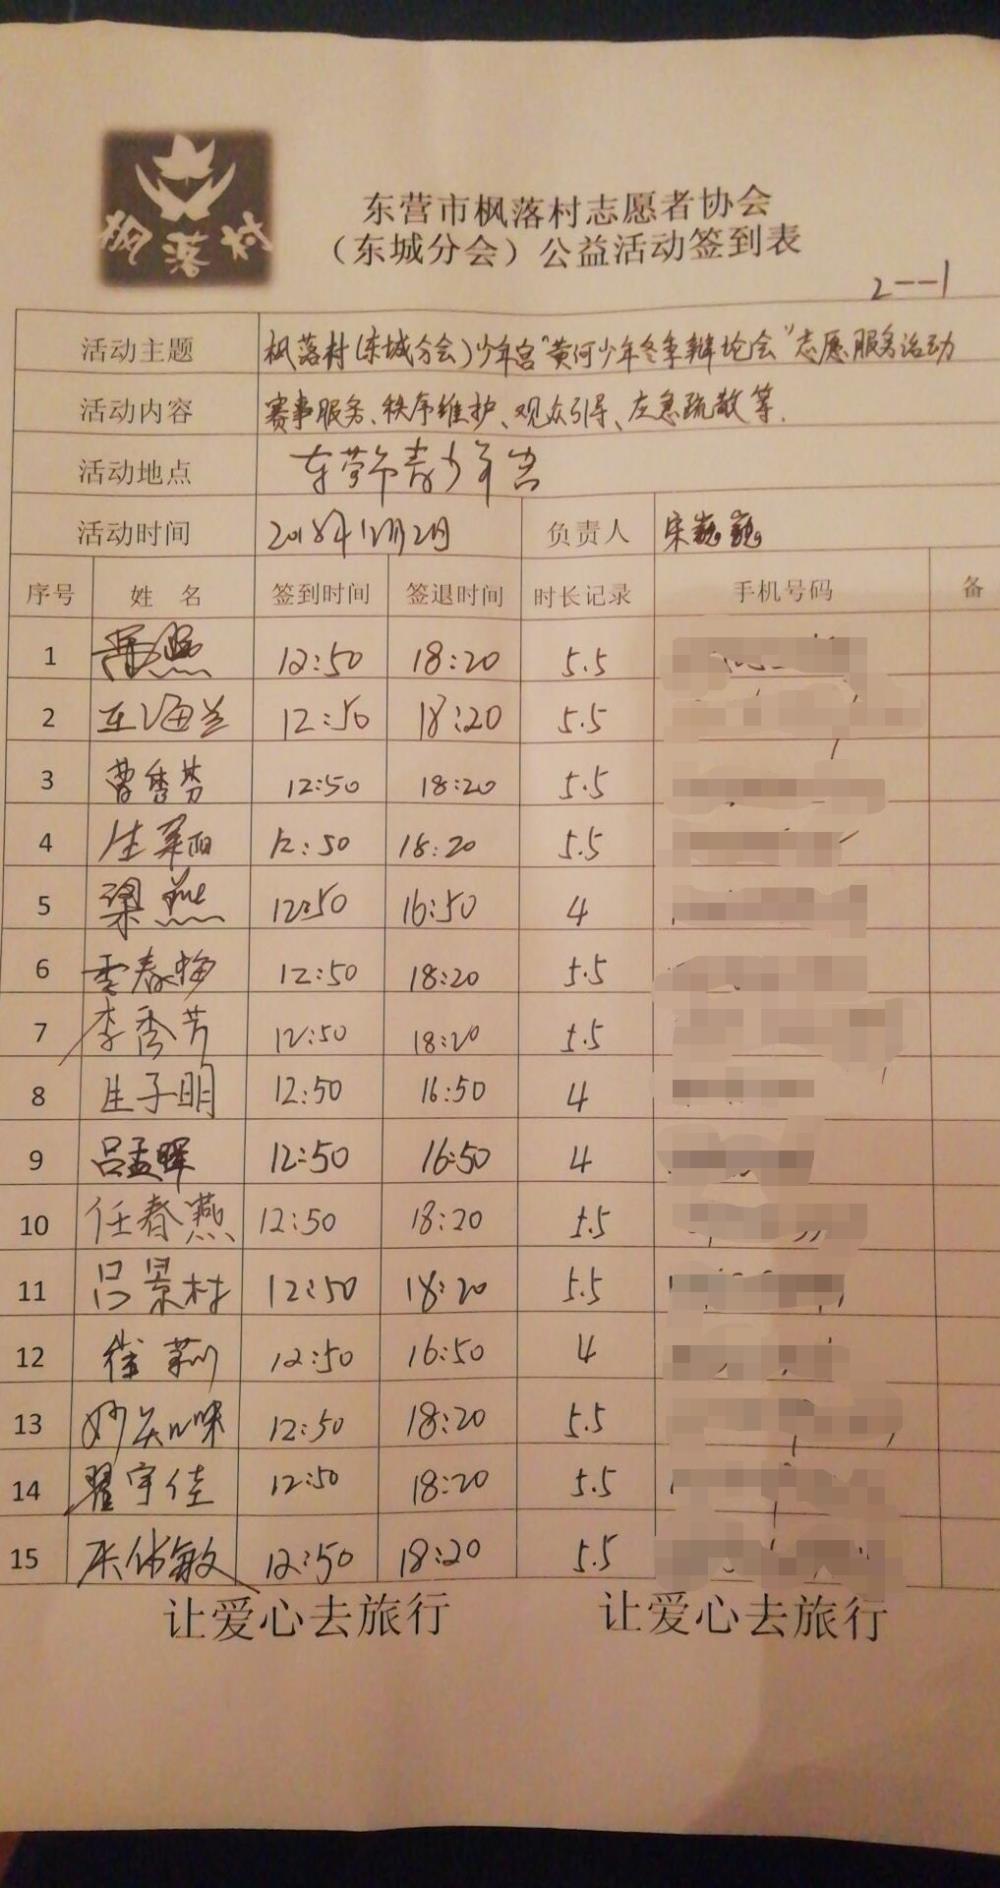 枫落村
东营市枫落村志愿者协会
（东城分会）公益活动签到表
2---1
活动主题 枫落村(东城分会)少年宫"黄河少年冬季辩论会"志愿服务活动
活动内容 赛事服务、秩序维护、观众引导、应急疏散等.
活动地点 东营市青少年宫
活动时间 2018年12月2日 负责人 宋巍巍
序号 姓 名 签到时间 签退时间 时长记录 手机号码 备
1 12:50 18:20 5.5
2 王海兰 12:50 18:20 5.5
3 曹秀芬 12:50 18:20 5.5
4 12:50 18:20 5.5
5 梁燕 12:50 16:50 4
6 春梅 12:50 18:20 5.5
7 李秀芳 12:50 18:20 5.5
8 生子明 12:50 16:50 4
9 吕孟晖 12:50 16:50 4
10 任春燕 12:50 18:20 5.5
11 吕景村 12:50 18:20 5.5
12 徐莉 12:50 16:50 4
13 12:50 18:20 5.5
14 翟宇佳 12:50 18:20 5.5
15 12:50 18:20 5.5
让爱心去旅行 让爱心去旅行